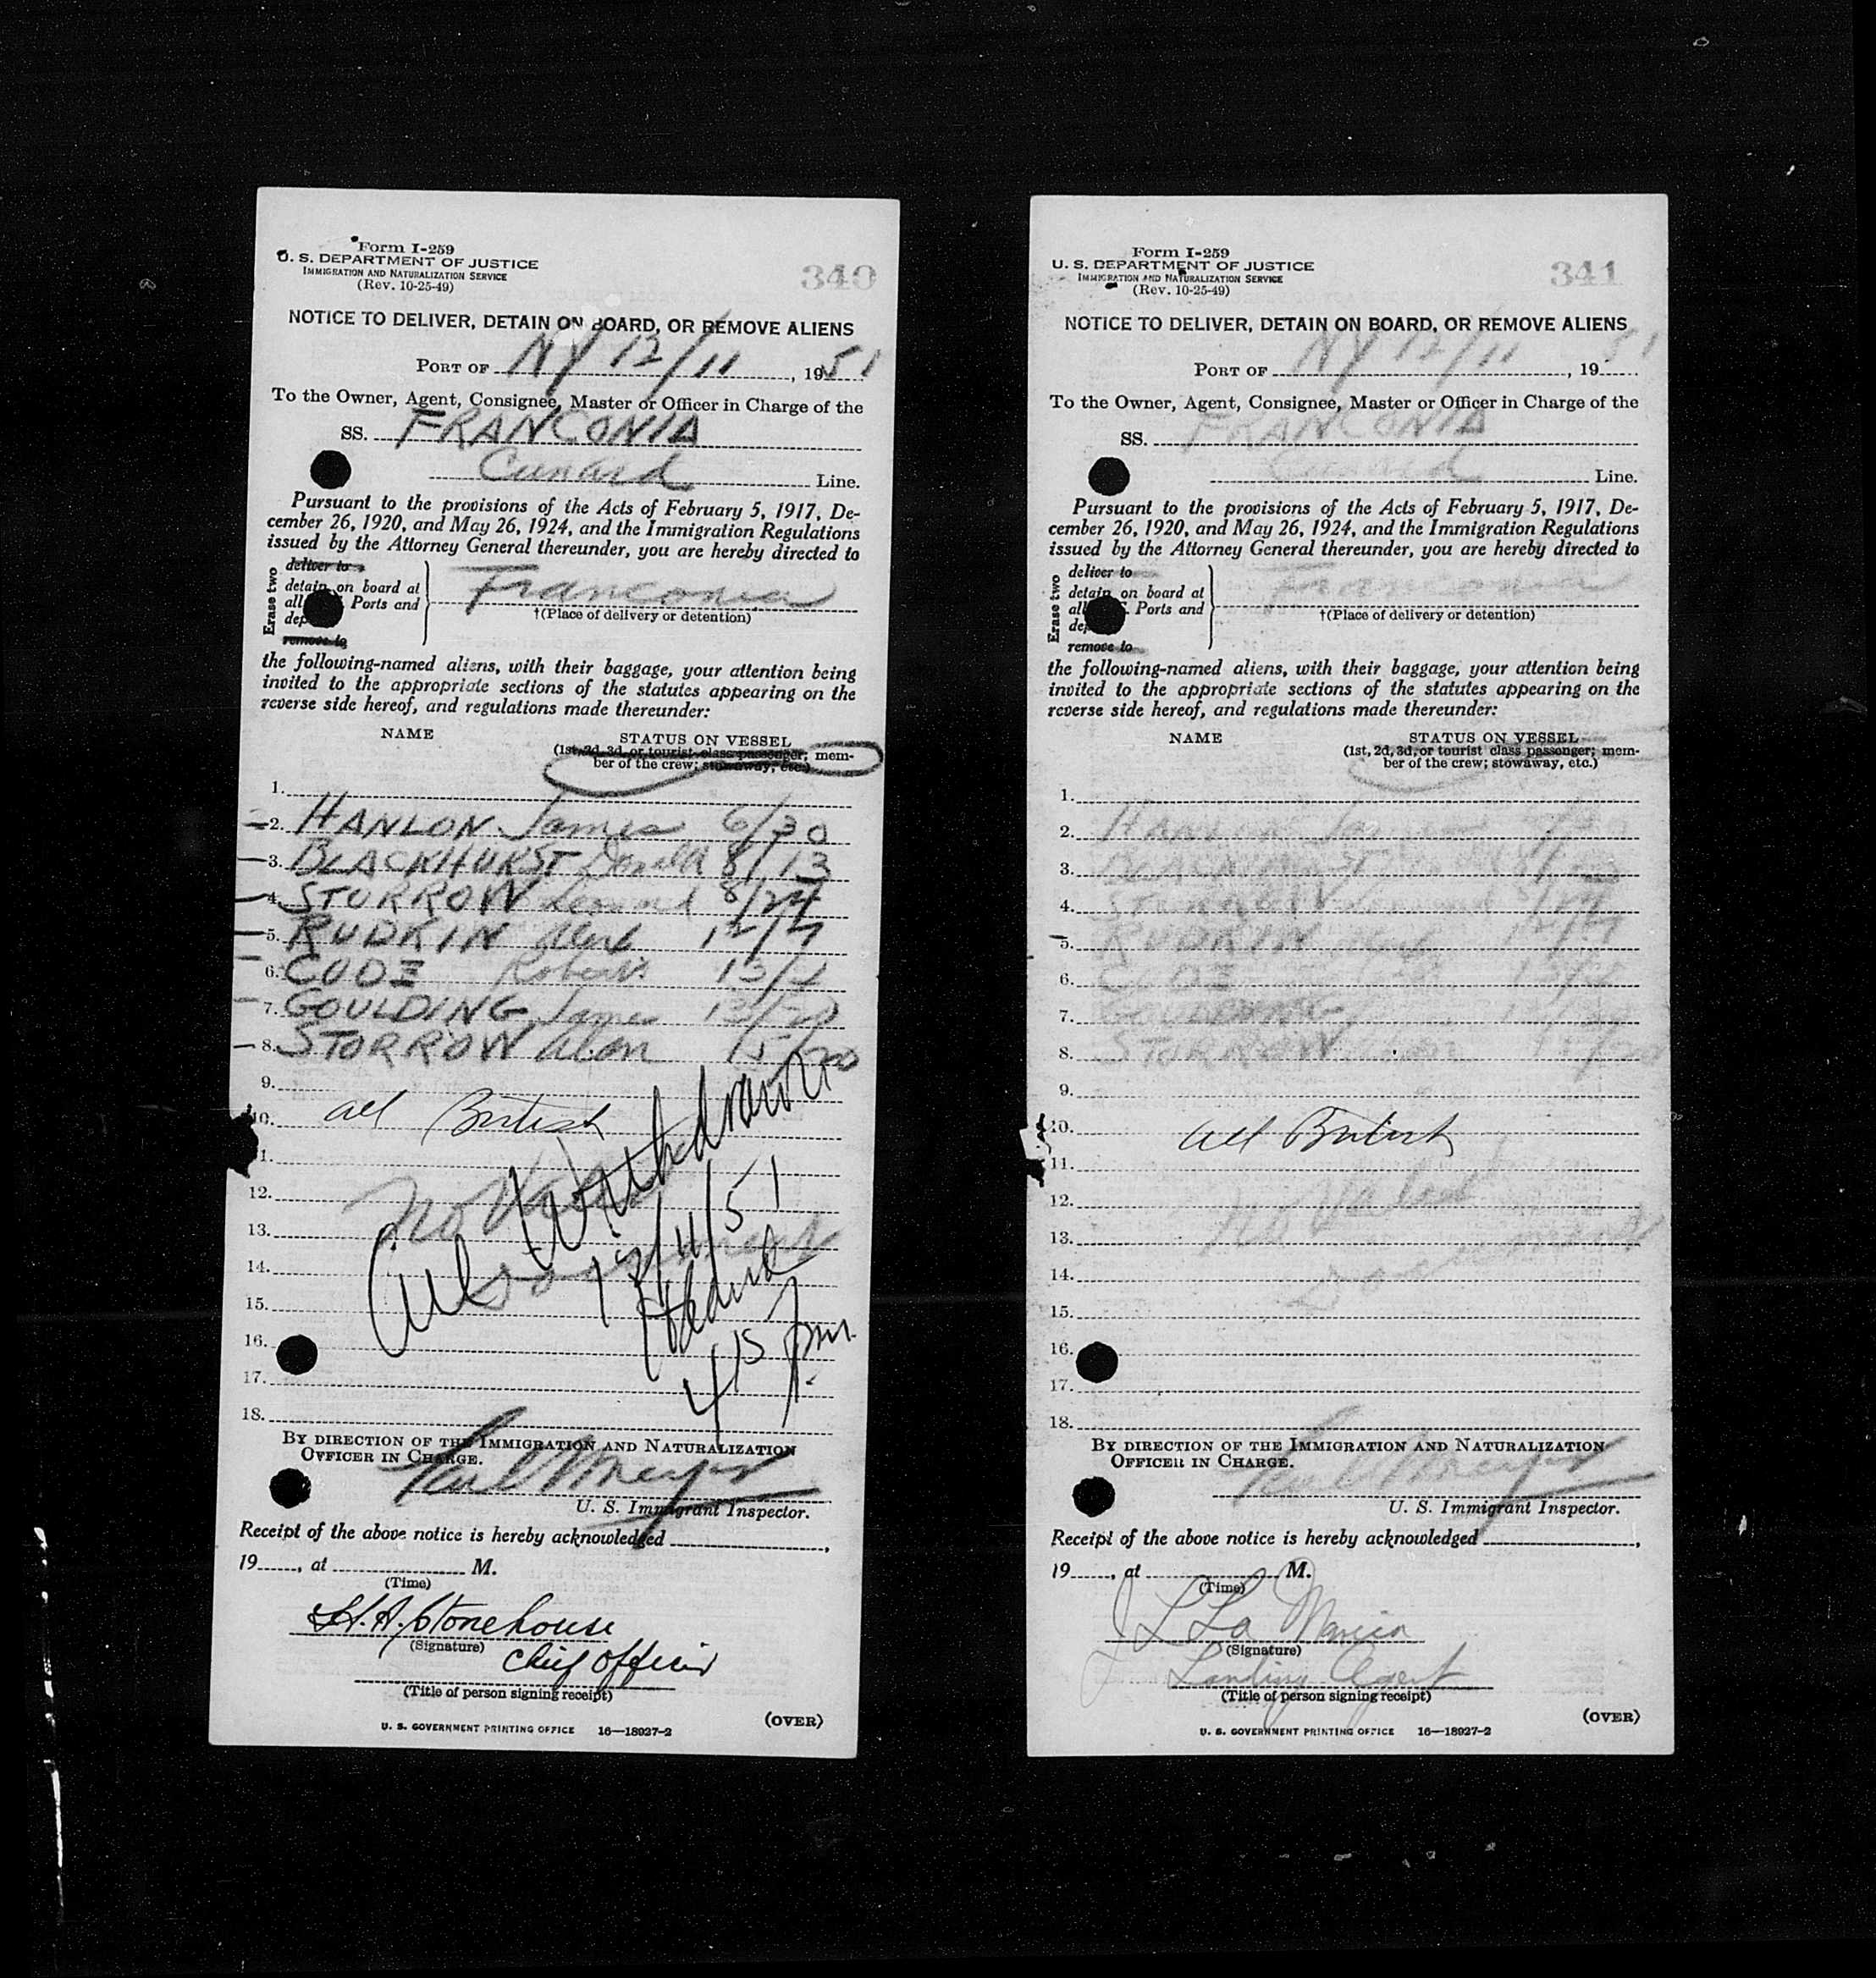 Form I-259
U. S. DEPARTMENT OF JUSTICE
IMMIGRATION AND NATURALIZATION SERVICE
(Rev. 10-25-49)
340
NOTICE TO DELIVER, DETAIN ON BOARD, OR REMOVE ALIENS
PORT OF NY 12/11, 1951
To the Owner, Agent, Consignee, Master or Officer in Charge of the
SS. FRANCONIA
Cunard Line.
Pursuant to the provisions of the Acts of February 5, 1917, De-
cember 26, 1920, and May 26, 1924, and the Immigration Regulations
issued by the Attorney General thereunder, you are hereby directed to
Erase two
deliver to
detain on board at
all Ports and
remove to
Franconia
†(Place of delivery or detention)
the following-named aliens, with their baggage, your attention being
invited to the appropriate sections of the statutes appearing on the
reverse side hereof, and regulations made thereunder:
NAME STATUS ON VESSEL
(1st, 2d, 3d, or tourist class passenger; mem-
ber of the crew; stowaway, etc.)
1.
2. HANLON James 6/30
3. BLACKHURST Donald 8/13
4. STORROW Leonard 8/24
5. RUDKIN 12/7
6. CODE Robert 13/2
7. GOULDING James 13/20
8. STORROW Alan 15/20
9.
10. all British
11.
12. No Valid
13. Document
14. All Withdrawn
15. 12/11/51
16. 415 pm.
17.
18.
BY DIRECTION OF THE IMMIGRATION AND NATURALIZATION
OFFICER IN CHARGE.
Karl Meyer
U. S. Immigrant Inspector.
Receipt of the above notice is hereby acknowledged ,
19 , at M.
(Time)
H. A. Stonehouse
(Signature)
Chief Officer
(Title of person signing receipt)
(OVER)
U. S. GOVERNMENT PRINTING OFFICE 16—18927-2
Form I-259
U. S. DEPARTMENT OF JUSTICE
IMMIGRATION AND NATURALIZATION SERVICE
(Rev. 10-25-49)
341
NOTICE TO DELIVER, DETAIN ON BOARD, OR REMOVE ALIENS
PORT OF NY 12/11, 19 51
To the Owner, Agent, Consignee, Master or Officer in Charge of the
SS. FRANCONIA
Cunard Line.
Pursuant to the provisions of the Acts of February 5, 1917, De-
cember 26, 1920, and May 26, 1924, and the Immigration Regulations
issued by the Attorney General thereunder, you are hereby directed to
Erase two
deliver to
detain on board at
Ports and
remove to
Franconia
†(Place of delivery or detention)
the following-named aliens, with their baggage, your attention being
invited to the appropriate sections of the statutes appearing on the
reverse side hereof, and regulations made thereunder:
NAME STATUS ON VESSEL
(1st, 2d, 3d, or tourist class passenger; mem-
ber of the crew; stowaway, etc.)
1.
2. HANLON James
3. BLACKHURST
4. STORROW Leonard
5. RUDKIN 12/7
6. CODE
7. GOULDING
8. STORROW Alan
9.
10. all British
11.
12. No Valid
13. Document
14.
15.
16.
17.
18.
BY DIRECTION OF THE IMMIGRATION AND NATURALIZATION
OFFICER IN CHARGE.
Karl Meyer
U. S. Immigrant Inspector.
Receipt of the above notice is hereby acknowledged ,
19 , at M.
(Time)
J L La
(Signature)
Landing Agent
(Title of person signing receipt)
(OVER)
U. S. GOVERNMENT PRINTING OFFICE 16—18927-2